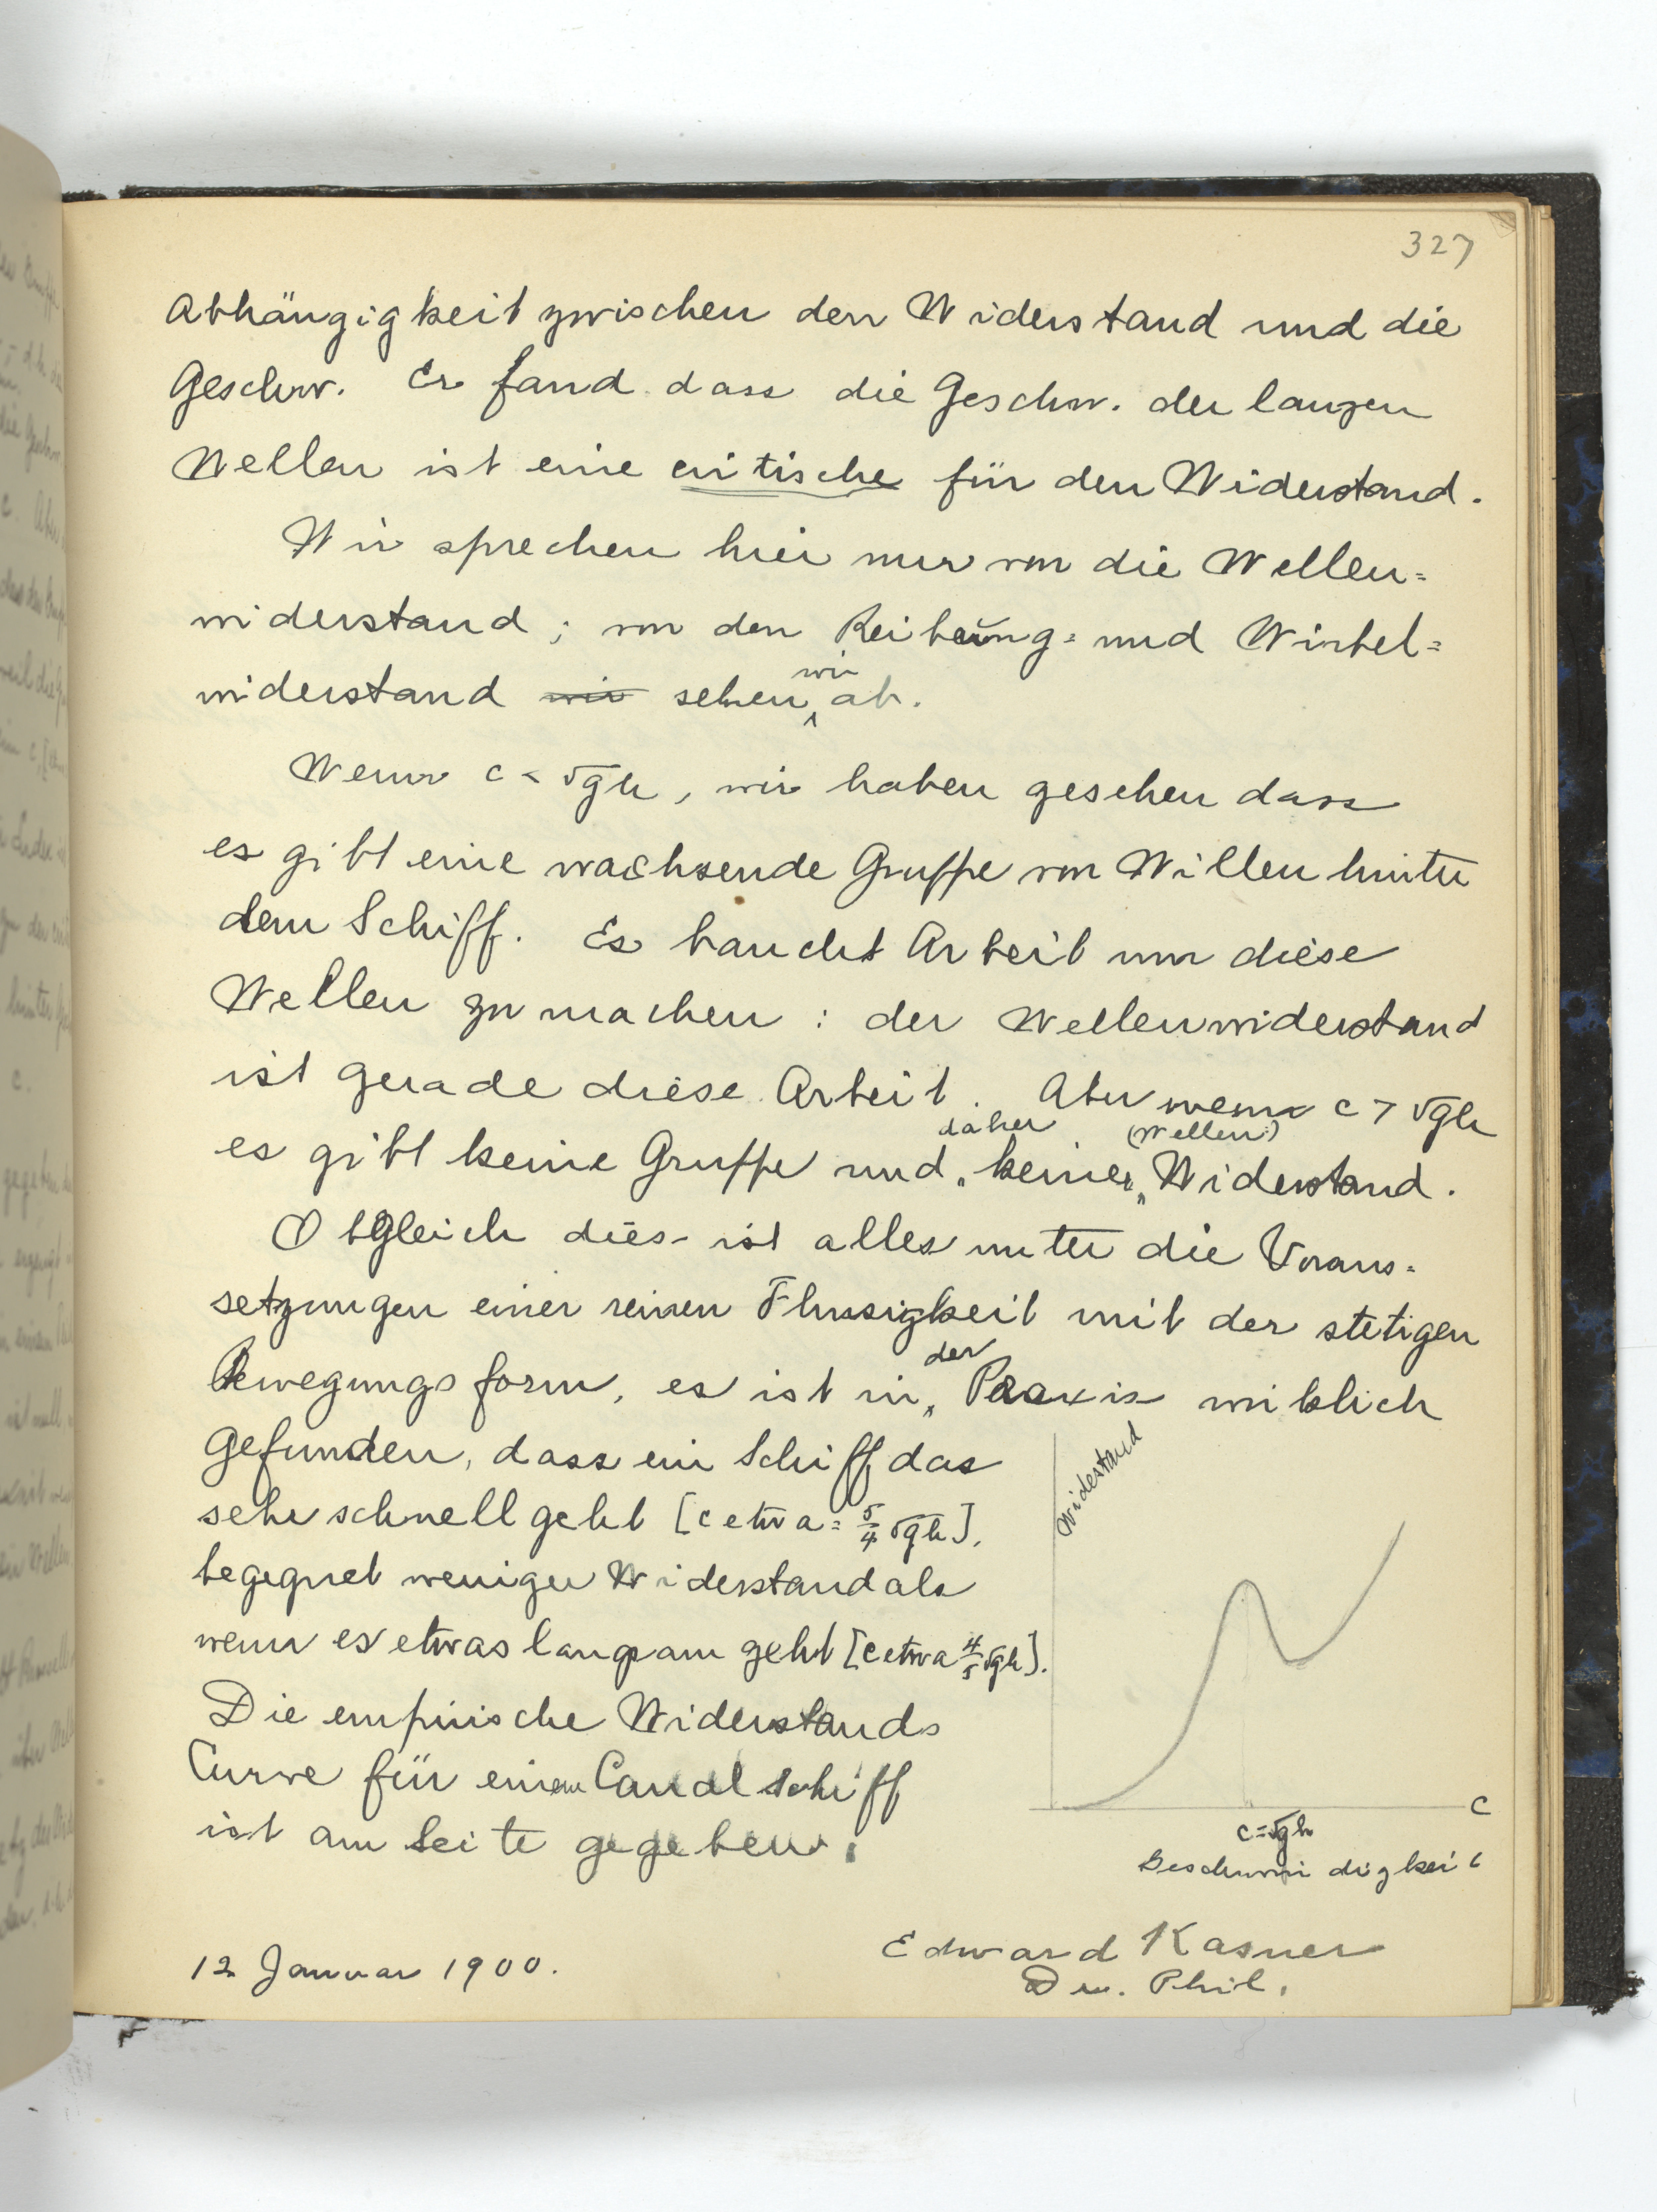 327
Abhängigkeit zwischen den Widerstand und die
Geschw. Er fand dass die Geschw. der langen
Wellen ist eine critische für den Widerstand.
Wir sprechen hier nur von die Wellen=
widerstand; von den Reibung= und Wirbel=
widerstand wir sehen wir ab.
Wenn c < √gh, wir haben gesehen dass
es gibt eine wachsende Gruppe von Willen hinter
dem Schiff. Es baucht Arbeit um diese
Wellen zu machen : der Wellenwiderstand
ist gerade diese Arbeit. Aber wenn c > √gh
es gibt keine Gruppe und daher keinen (Wellen) Widerstand.
Obgleich dies ist alles unter die Voraus=
setzungen einer reinen Flussigkeit mit der stetigen
Bewegungsform, es ist in der Praxis wiklich
gefunden, dass ein Schiff das
sehr schnell geht [c etwa = 5/4 √gh],
begegnet weniger Widerstand als
wenn es etwas langsam geht [c etwa 4/5 √gh].
Die empirische Widerstands
Curve für einem Canalschiff
ist am Seite gegeben.
Widestand
c
c=√gh
Geschwindigkeit
12 Januar 1900.
Edward Kasner
Dr. Phil.